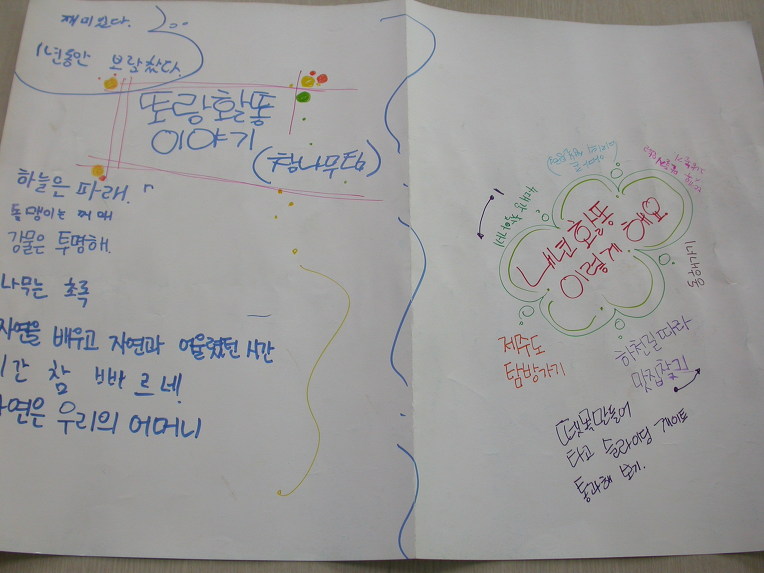 재미있다.
1년동안 보람찼다.
또랑활똥
이야기
(참나무팀)
하늘은 파래.
돌맹이는 꺼매
강물은 투명해.
나무는 초록
자연을 배우고 자연과 어울렸던 시간
시간 참 빠르네!
자연은 우리의 어머니
내년활똥
이렇게 해요
제주도
탐방가기
하천길따라
맛집찾기
뗏목만들어
타고 슬라이딩 게이트
통과해 보기.